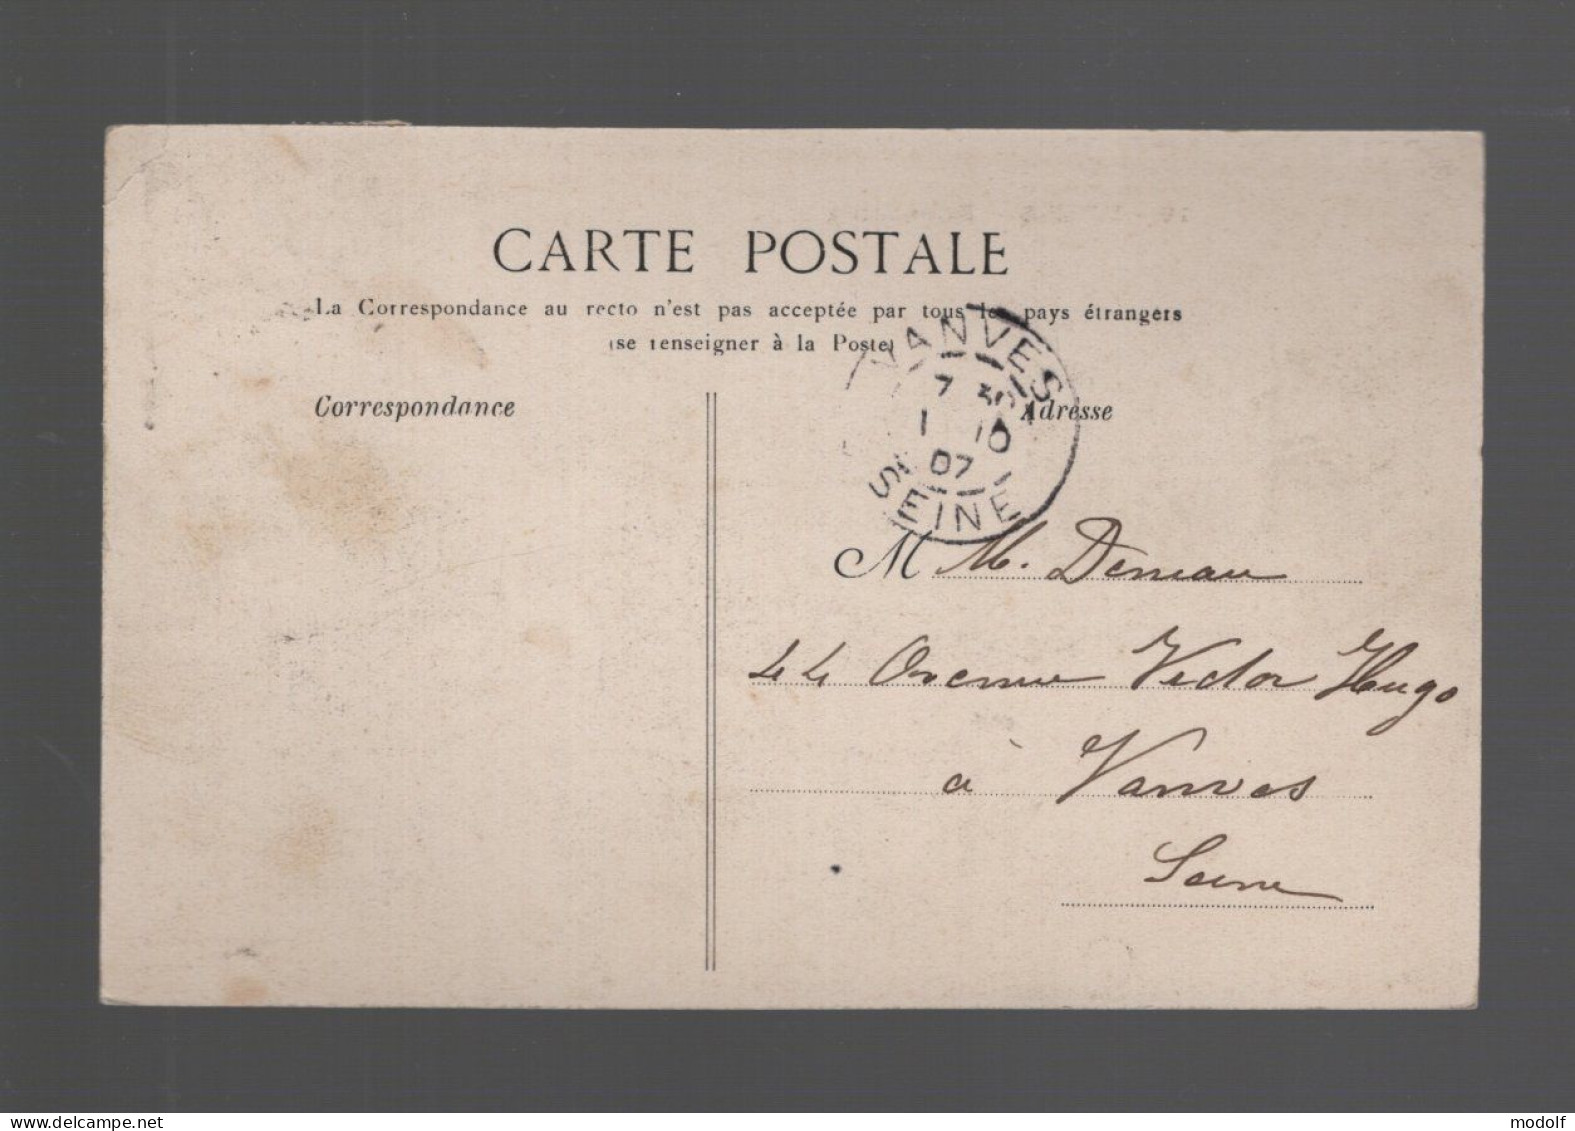 CARTE POSTALE
La Correspondance au recto n'est pas acceptée par tous les pays étrangers
(se renseigner à la Poste)
Correspondance
Adresse
VANVES
7 30
1 10
07
SEINE
M M. Deneau
44 Avenue Victor Hugo
à Vanves
Seine
www.delcampe.net
modolf